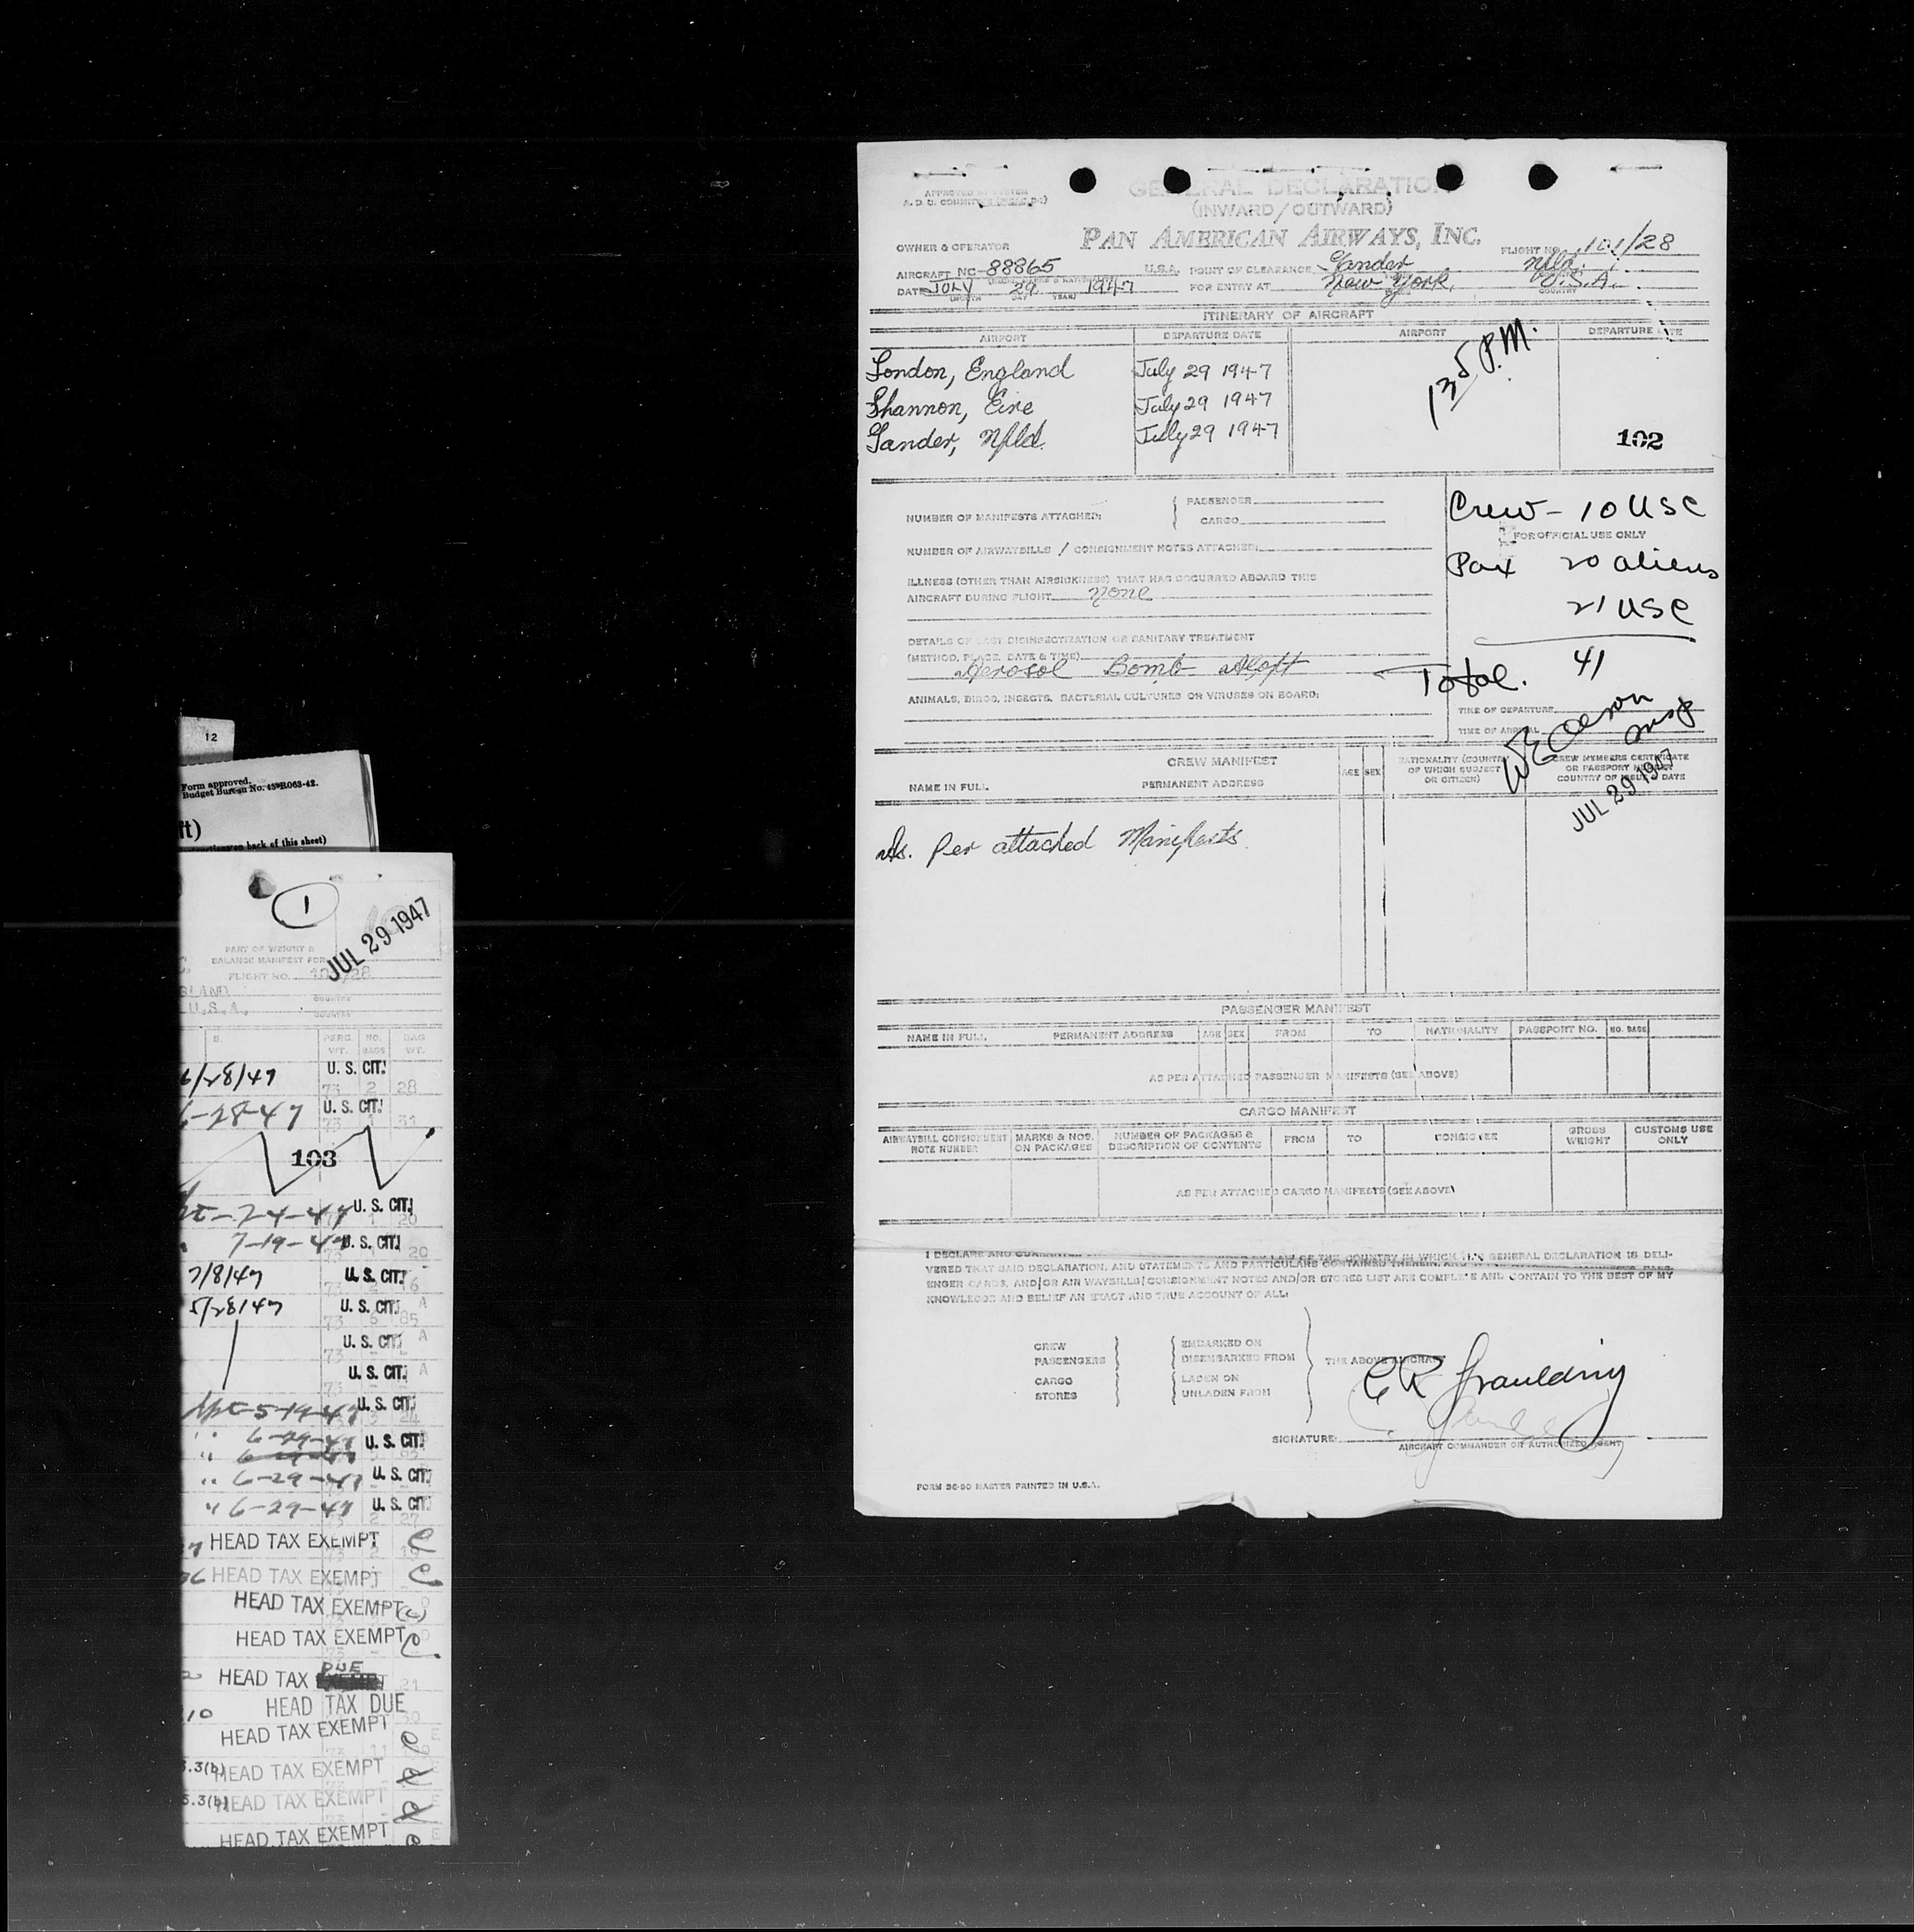 12
Form approved.
Budget Bureau No. 43-R063-42.
ft)
on back of this sheet)
1
JUL 29 1947
PART OF WEIGHT &
BALANCE MANIFEST FOR
FLIGHT NO. 101/28
GLAND
COUNTRY
U.S.A.
COUNTRY
B. PERS. WT. NO. BAGS BAG WT.
6/28/47 U. S. CIT.
73 2 28
6-28-47 U. S. CIT.
73 1 31
103
7-4-47 U. S. CIT.
1 20
7-19-47 U. S. CIT.
20
7/8/47 U. S. CIT.
5/28/47 U. S. CIT. A
73 6 85
U. S. CIT. A
73 - -
U. S. CIT. A
73 - -
5-19-47 U. S. CIT.
" 6-29-47 U. S. CIT.
" 6-29-47 U. S. CIT.
" 6-29-47 U. S. CIT.
2 27
HEAD TAX EXEMPT
HEAD TAX EXEMPT
HEAD TAX EXEMPT
HEAD TAX EXEMPT
HEAD TAX DUE
21
10 HEAD TAX DUE
HEAD TAX EXEMPT
.3(b) HEAD TAX EXEMPT
.3(b) HEAD TAX EXEMPT
HEAD TAX EXEMPT
GENERAL DECLARATION
(INWARD/OUTWARD)
PAN AMERICAN AIRWAYS, INC.
OWNER & OPERATOR
FLIGHT NO. 101/28
AIRCRAFT NC-88865 U.S.A. POINT OF CLEARANCE Gander Nfld.
DATE JULY 29 1947 FOR ENTRY AT New York, U.S.A.
MONTH DAY YEAR COUNTRY
ITINERARY OF AIRCRAFT
AIRPORT DEPARTURE DATE AIRPORT DEPARTURE DATE
London, England July 29 1947
Shannon, Eire July 29 1947
Gander, Nfld. July 29 1947
135 P.M.
102
NUMBER OF MANIFESTS ATTACHED: { PASSENGER
CARGO
NUMBER OF AIRWAYBILLS / CONSIGNMENT NOTES ATTACHED:
ILLNESS (OTHER THAN AIRSICKNESS) THAT HAS OCCURRED ABOARD THIS
AIRCRAFT DURING FLIGHT None
DETAILS OF LAST DISINSECTIZATION OR SANITARY TREATMENT
(METHOD, PLACE, DATE & TIME)
Aerosol Bomb Aloft
ANIMALS, BIRDS, INSECTS, BACTERIAL CULTURES OR VIRUSES ON BOARD:
Crew - 10 USC
FOR OFFICIAL USE ONLY
Pax 20 aliens
21 USC
Total. 41
TIME OF DEPARTURE
TIME OF ARRIVAL
Insp
JUL 29 1947
CREW MANIFEST
NAME IN FULL PERMANENT ADDRESS AGE SEX NATIONALITY (COUNTRY OF WHICH SUBJECT OR CITIZEN) CREW MEMBERS CERTIFICATE OR PASSPORT NUMBER COUNTRY OF ISSUE & DATE
As. Per attached Manifests.
PASSENGER MANIFEST
NAME IN FULL PERMANENT ADDRESS AGE SEX FROM TO NATIONALITY PASSPORT NO. NO. BAGS
AS PER ATTACHED PASSENGER MANIFESTS (SEE ABOVE)
CARGO MANIFEST
AIRWAYBILL CONSIGNMENT NOTE NUMBER MARKS & NOS. ON PACKAGES NUMBER OF PACKAGES & DESCRIPTION OF CONTENTS FROM TO CONSIGNEE GROSS WEIGHT CUSTOMS USE ONLY
AS PER ATTACHED CARGO MANIFESTS (SEE ABOVE)
I DECLARE AND GUARANTEE BY LAW OF THE COUNTRY IN WHICH THIS GENERAL DECLARATION IS DELI-
VERED THAT SAID DECLARATION, AND STATEMENTS AND PARTICULARS CONTAINED THEREIN, AND
ENGER CARDS, AND/OR AIR WAYBILLS/CONSIGNMENT NOTES AND/OR STORES LIST ARE COMPLETE AND CONTAIN TO THE BEST OF MY
KNOWLEDGE AND BELIEF AN EXACT AND TRUE ACCOUNT OF ALL:
CREW EMBARKED ON
PASSENGERS DISEMBARKED FROM THE ABOVE AIRCRAFT
CARGO LADEN ON
STORES UNLADEN FROM
C R Spaulding
SIGNATURE:
AIRCRAFT COMMANDER OR AUTHORIZED AGENT
FORM 36-50 MASTER PRINTED IN U.S.A.